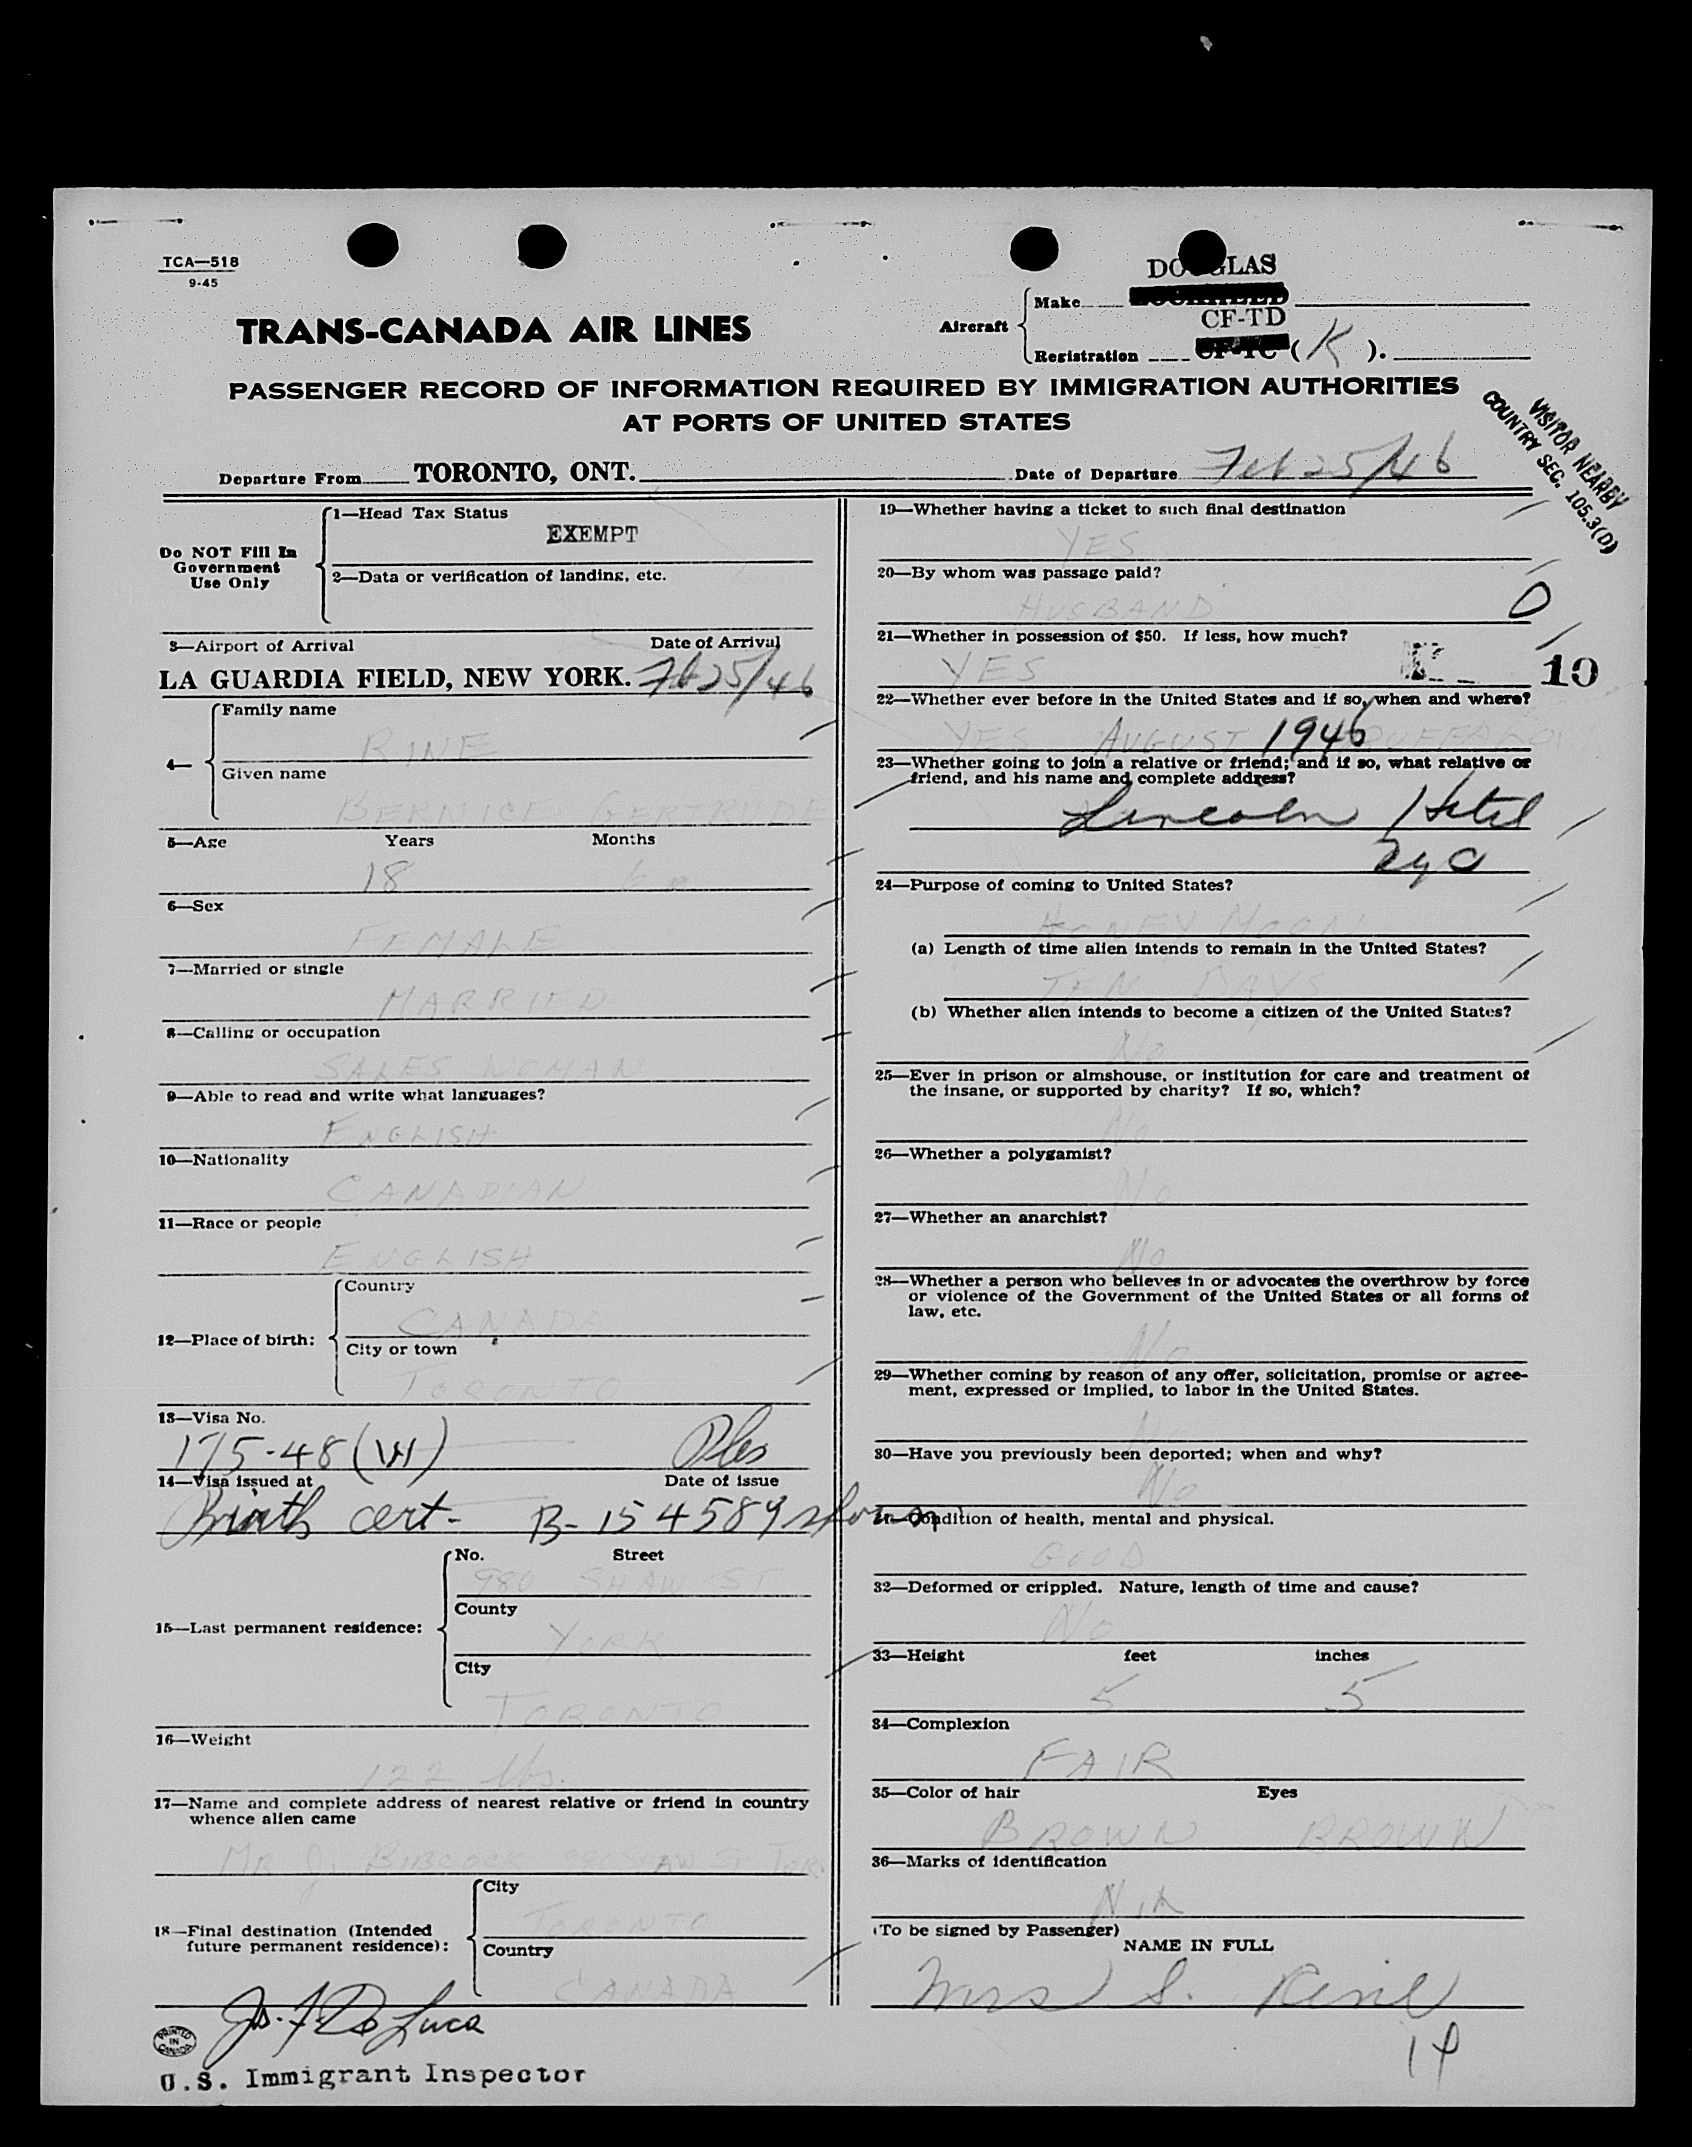 TCA—518
9-45
DOUGLAS
Aircraft
Make
CF-TD
Registration CF-TC ( K ).
TRANS-CANADA AIR LINES
PASSENGER RECORD OF INFORMATION REQUIRED BY IMMIGRATION AUTHORITIES
AT PORTS OF UNITED STATES
VISITOR NEARBY
COUNTRY SEC. 105.3(D)
Departure From TORONTO, ONT. Date of Departure Feb 25/46
Do NOT Fill In
Government
Use Only
1—Head Tax Status
EXEMPT
2—Data or verification of landing, etc.
3—Airport of Arrival Date of Arrival
LA GUARDIA FIELD, NEW YORK. Feb 25/46
4—
Family name
RINE
Given name
BERNICE GERTRUDE
5—Age Years Months
18
6—Sex
FEMALE
7—Married or single
MARRIED
8—Calling or occupation
SALES WOMAN
9—Able to read and write what languages?
ENGLISH
10—Nationality
CANADIAN
11—Race or people
ENGLISH
12—Place of birth:
Country
CANADA
City or town
TORONTO
13—Visa No.
175-48
14—Visa issued at Date of issue
Birth cert- B-154589 shown
15—Last permanent residence:
No. Street
980 SHAW ST
County
YORK
City
TORONTO
16—Weight
122 lbs.
17—Name and complete address of nearest relative or friend in country
whence alien came
MR J. SHAW ST TOR
18—Final destination (Intended
future permanent residence):
City
TORONTO
Country
CANADA
Jos. F. De Luca
PRINTED IN CANADA
U.S. Immigrant Inspector
19—Whether having a ticket to such final destination
YES
20—By whom was passage paid?
HUSBAND
0
21—Whether in possession of $50. If less, how much?
YES
10
22—Whether ever before in the United States and if so, when and where?
YES AUGUST 1946 BUFFALO
23—Whether going to join a relative or friend; and if so, what relative or
friend, and his name and complete address?
Lincoln Hotel
NYC
24—Purpose of coming to United States?
HONEY MOON
(a) Length of time alien intends to remain in the United States?
TEN DAYS
(b) Whether alien intends to become a citizen of the United States?
No
25—Ever in prison or almshouse, or institution for care and treatment of
the insane, or supported by charity? If so, which?
No
26—Whether a polygamist?
No
27—Whether an anarchist?
No
28—Whether a person who believes in or advocates the overthrow by force
or violence of the Government of the United States or all forms of
law, etc.
No
29—Whether coming by reason of any offer, solicitation, promise or agree-
ment, expressed or implied, to labor in the United States.
No
30—Have you previously been deported; when and why?
No
31—Condition of health, mental and physical.
GOOD
32—Deformed or crippled. Nature, length of time and cause?
No
33—Height feet inches
5 5
34—Complexion
FAIR
35—Color of hair Eyes
BROWN BROWN
36—Marks of identification
NIL
(To be signed by Passenger)
NAME IN FULL
Mrs S. Rine